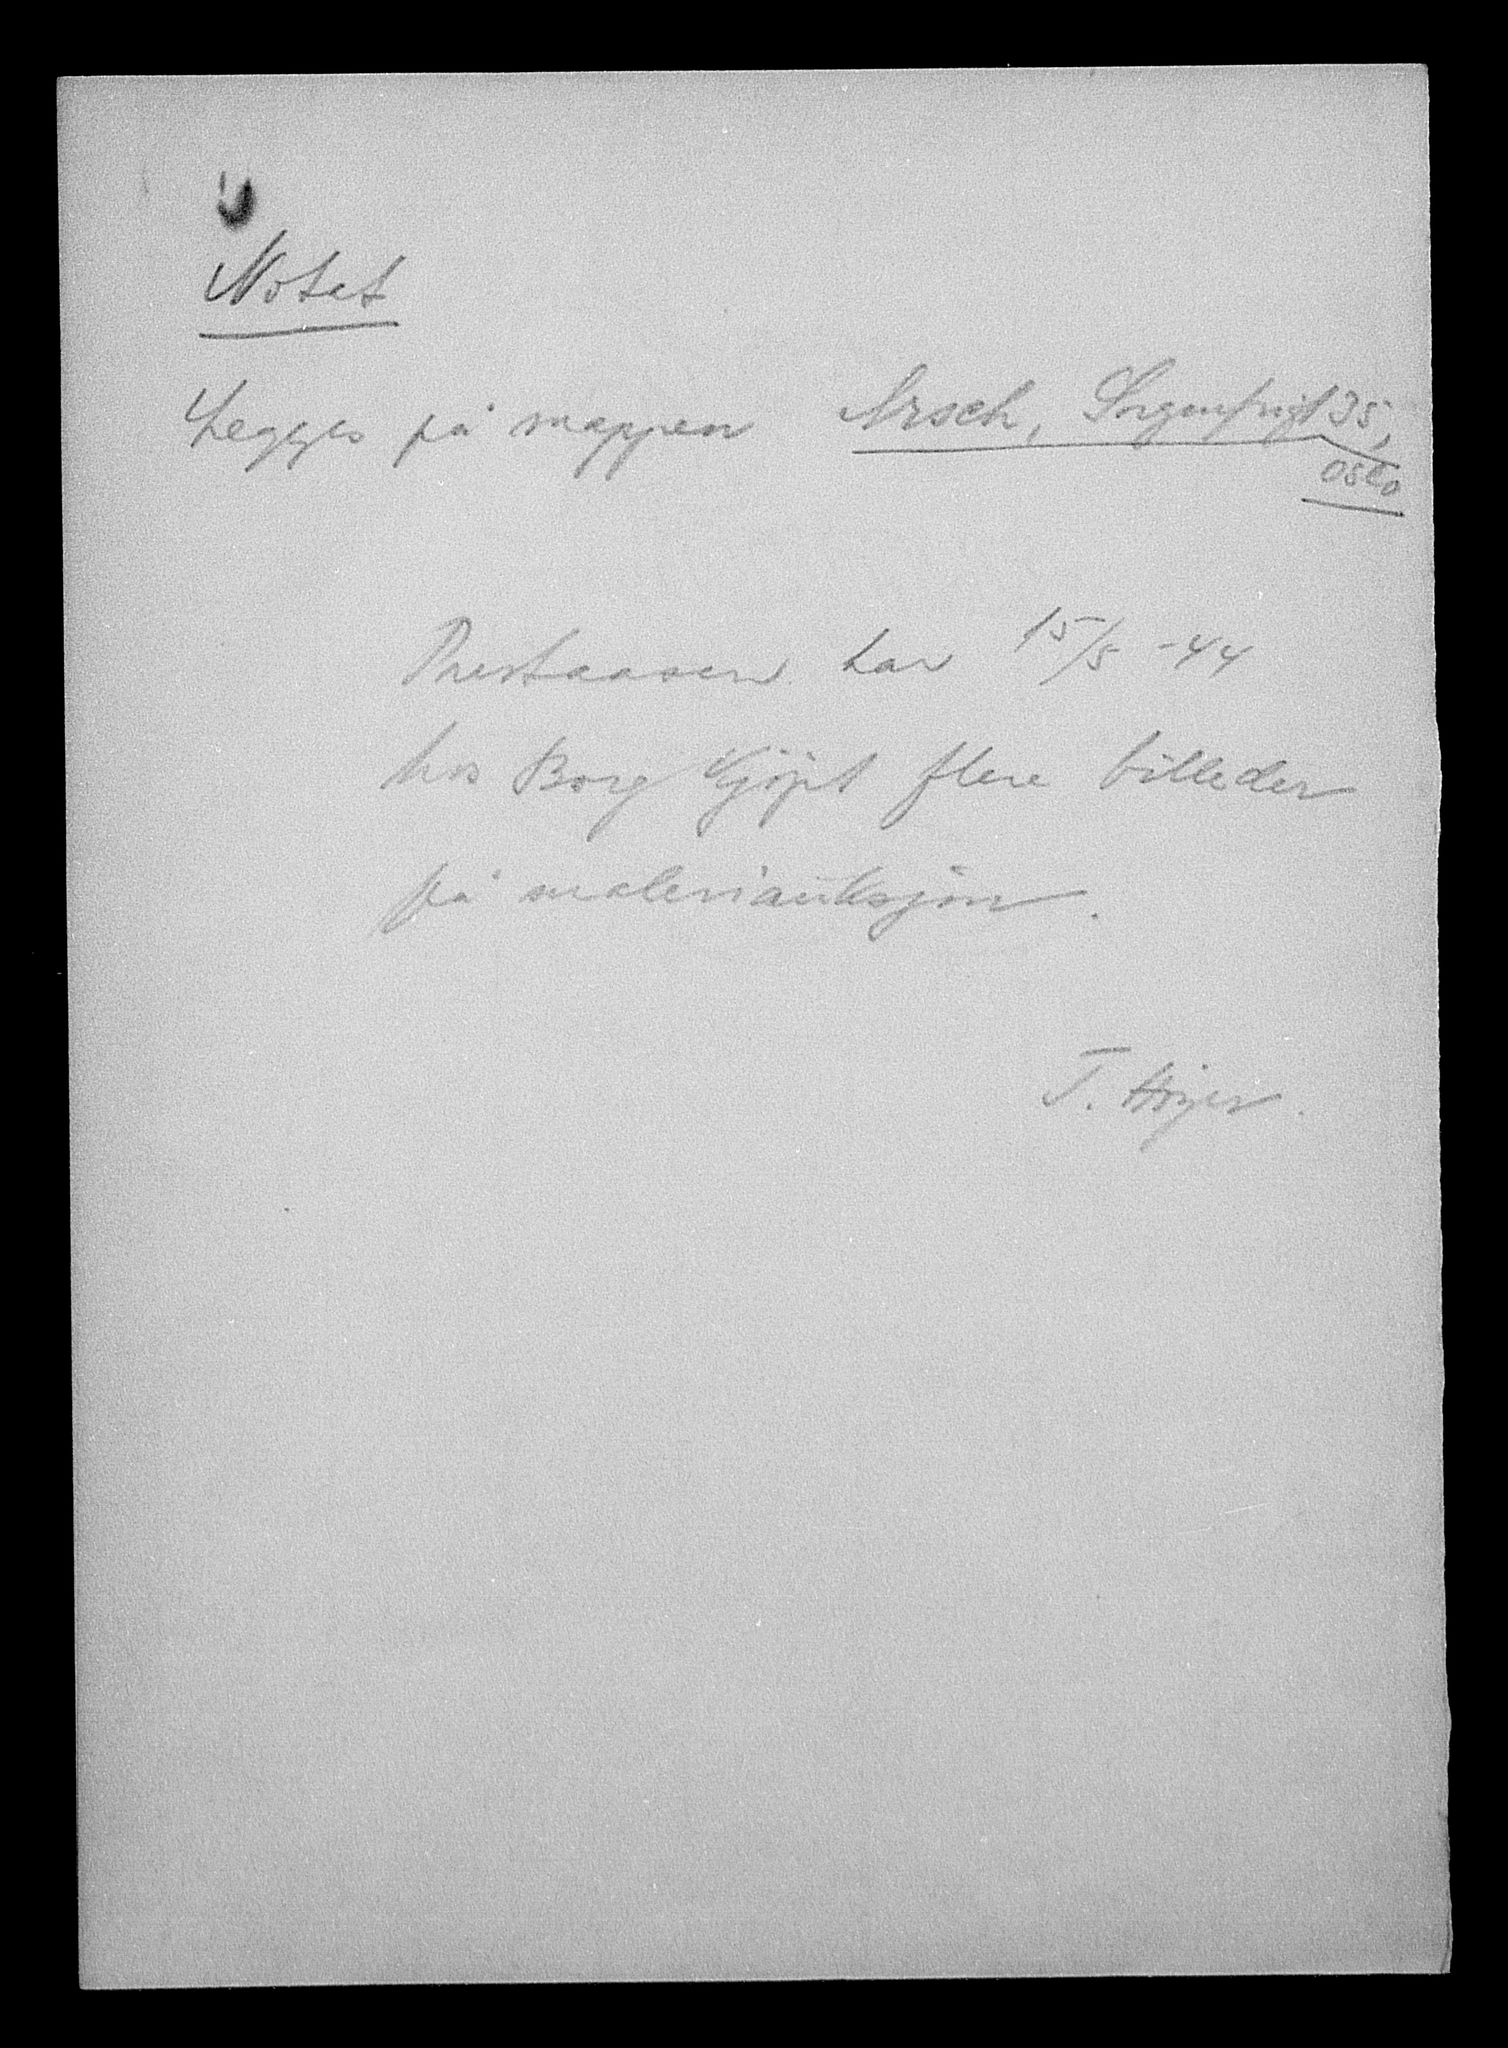 Notat
Legges på mappen Arsch, Sorgenfrigt 35,
Oslo
Prestaasen har 15/5 -44
hos Borg kjøpt flere billeder
på maleriauksjon.
T. Høyer.